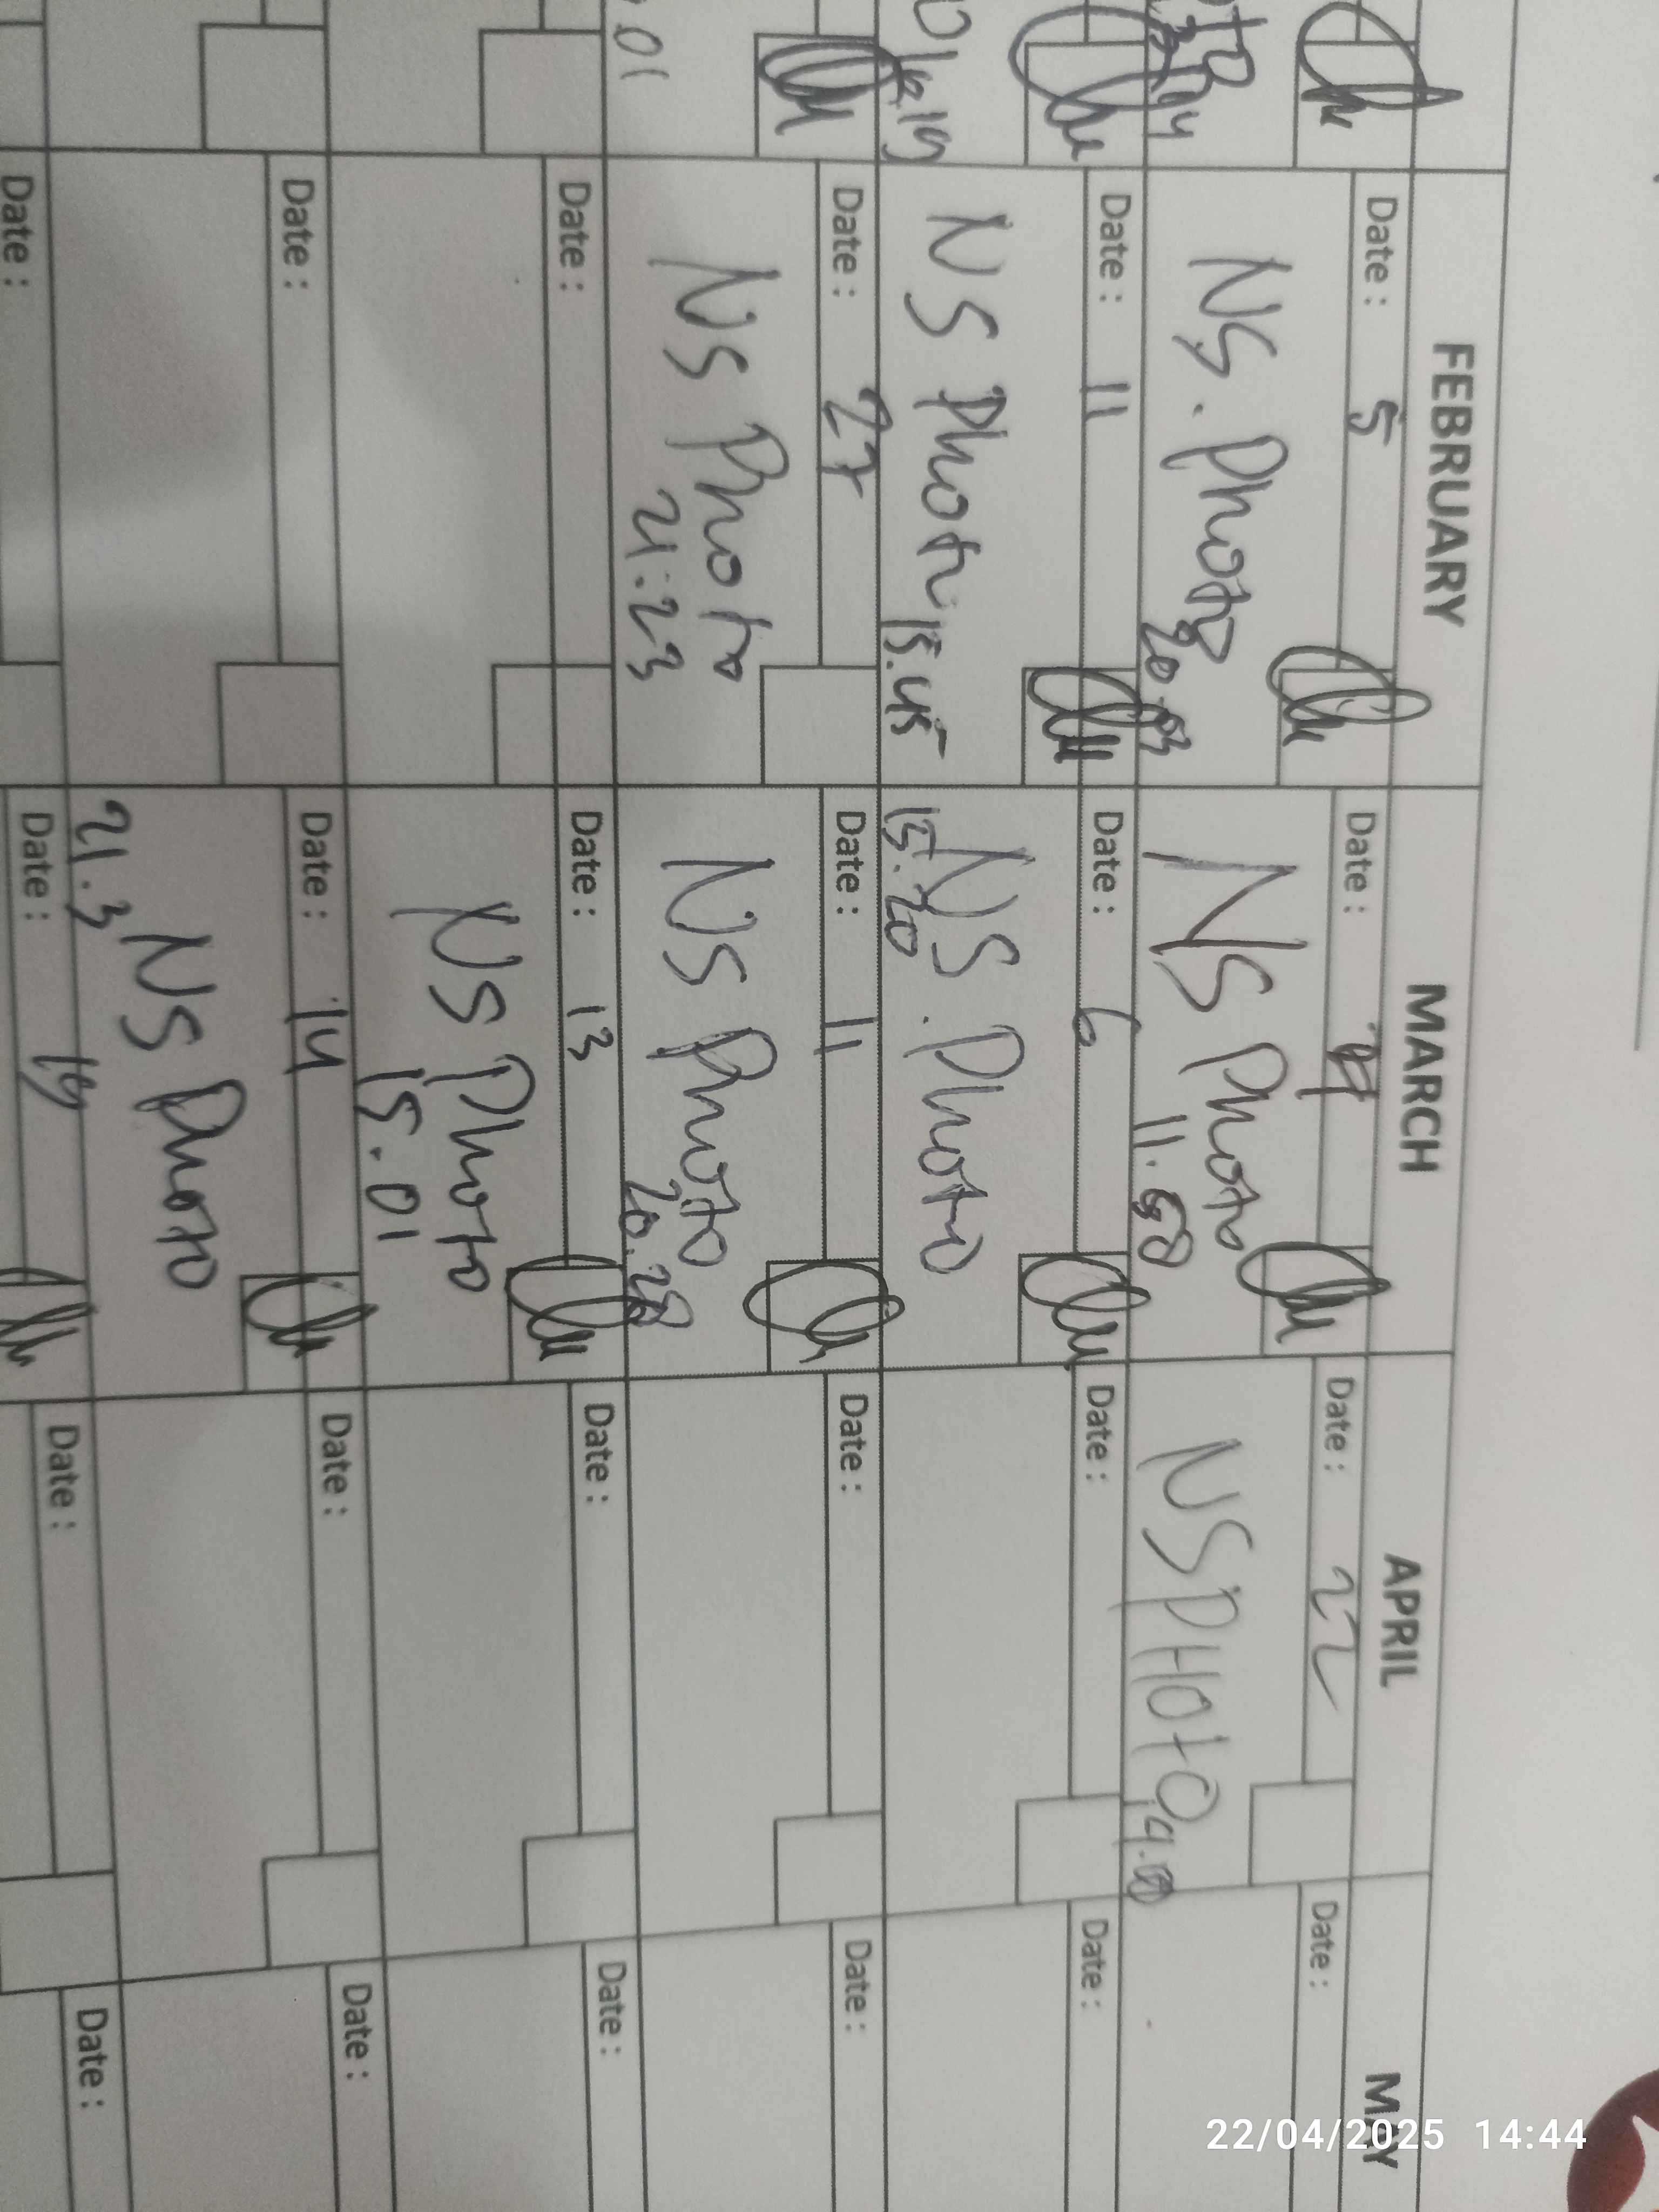 FEBRUARY
MARCH
APRIL
MAY
Date : 5
Date :
Date : 22
Date :
NS. Photo
20.03
NS Photo
11.58
NSPHOTO
14.00
Date : 11
Date : 6
Date :
Date :
NS Photo
15.45
NS. Photo
15.20
Date : 27
Date : 11
Date :
Date :
01
NS Photo
21.23
NS Photo
20.28
Date :
Date : 13
Date :
Date :
NS Photo
15.01
Date :
Date : 14
Date :
Date :
NS Photo
21.3
Date :
Date : 19
Date :
Date :
22/04/2025 14:44